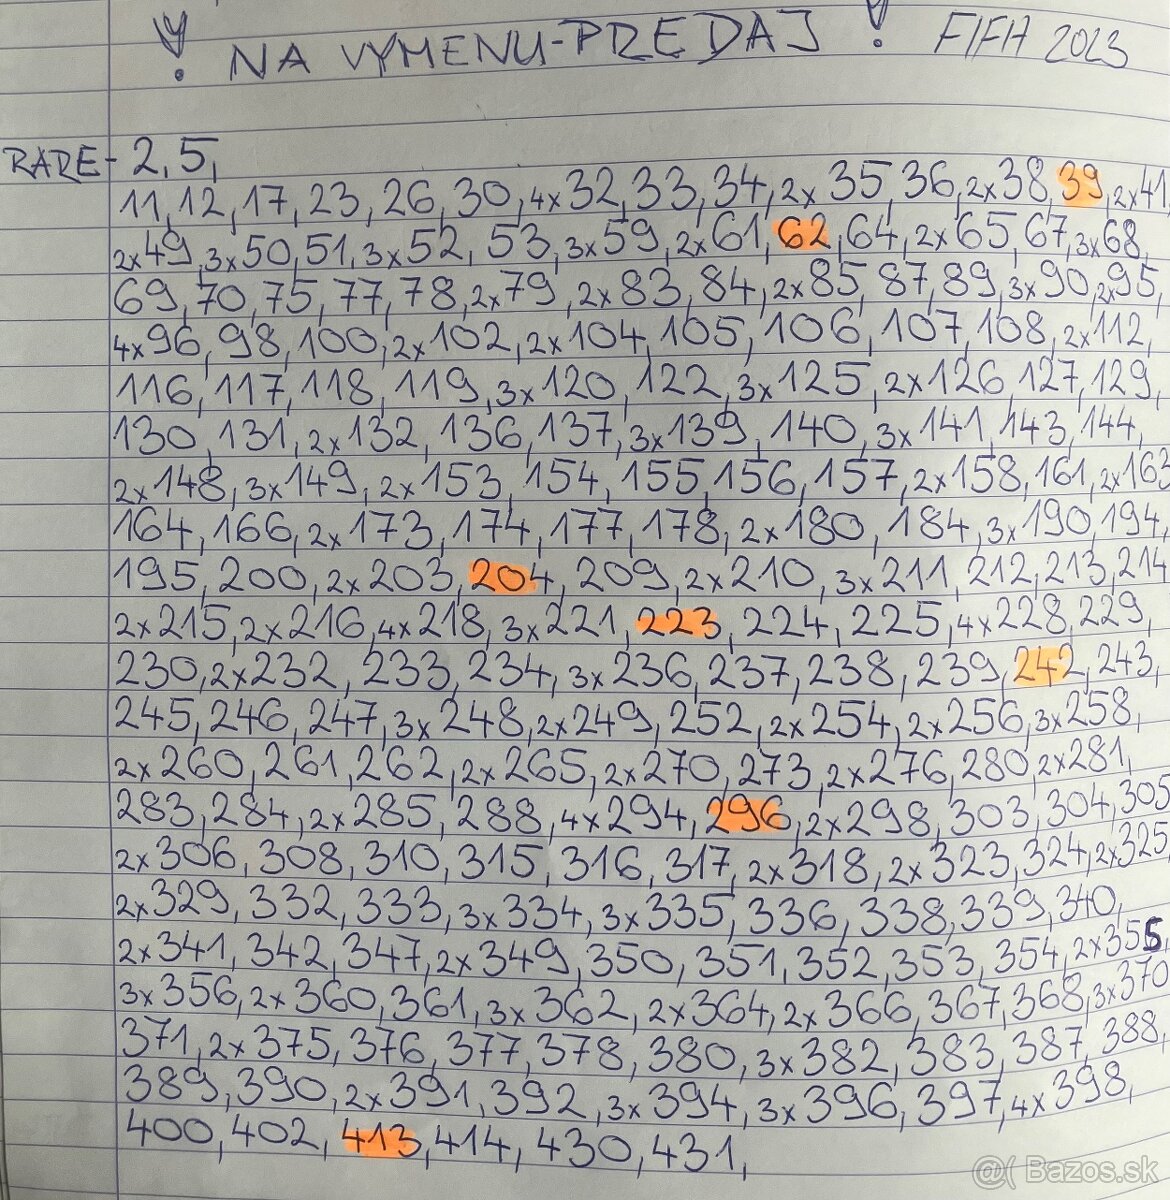 ! NA VYMENU-PREDAJ ! FIFA 2023
RARE - 2, 5,
11, 12, 17, 23, 26, 30, 4x32, 33, 34, 2x35, 36, 2x38, 39, 2x41,
2x49, 3x50, 51, 3x52, 53, 3x59, 2x61, 62, 64, 2x65, 67, 3x68,
69, 70, 75, 77, 78, 2x79, 2x83, 84, 2x85, 87, 89, 3x90, 2x95,
4x96, 98, 100, 2x102, 2x104, 105, 106, 107, 108, 2x112,
116, 117, 118, 119, 3x120, 122, 3x125, 2x126, 127, 129,
130, 131, 2x132, 136, 137, 3x139, 140, 3x141, 143, 144,
2x148, 3x149, 2x153, 154, 155, 156, 157, 2x158, 161, 2x163
164, 166, 2x173, 174, 177, 178, 2x180, 184, 3x190, 194,
195, 200, 2x203, 204, 209, 2x210, 3x211, 212, 213, 214
2x215, 2x216, 4x218, 3x221, 223, 224, 225, 4x228, 229,
230, 2x232, 233, 234, 3x236, 237, 238, 239, 242, 243,
245, 246, 247, 3x248, 2x249, 252, 2x254, 2x256, 3x258,
2x260, 261, 262, 2x265, 2x270, 273, 2x276, 280, 2x281,
283, 284, 2x285, 288, 4x294, 296, 2x298, 303, 304, 305
2x306, 308, 310, 315, 316, 317, 2x318, 2x323, 324, 2x325,
2x329, 332, 333, 3x334, 3x335, 336, 338, 339, 340,
2x341, 342, 347, 2x349, 350, 351, 352, 353, 354, 2x355,
3x356, 2x360, 361, 3x362, 2x364, 2x366, 367, 368, 3x370
371, 2x375, 376, 377, 378, 380, 3x382, 383, 387, 388,
389, 390, 2x391, 392, 3x394, 3x396, 397, 4x398,
400, 402, 413, 414, 430, 431,
@( Bazos.sk